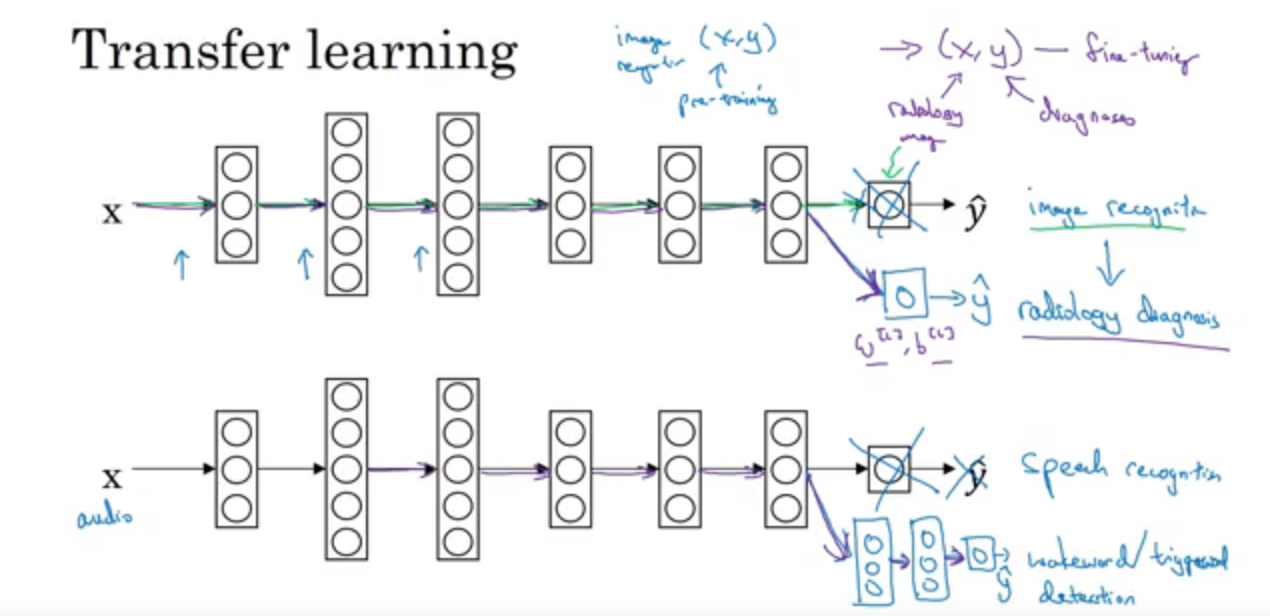 Transfer learning
image (x,y)
pre-training
→ (x,y) — fine-tuning
radiology
diagnoses
x
ŷ
image recognition
ŷ
radiology diagnosis
w[L], b[L]
x
audio
ŷ
speech recognition
ŷ
wakeword/triggerword
detection